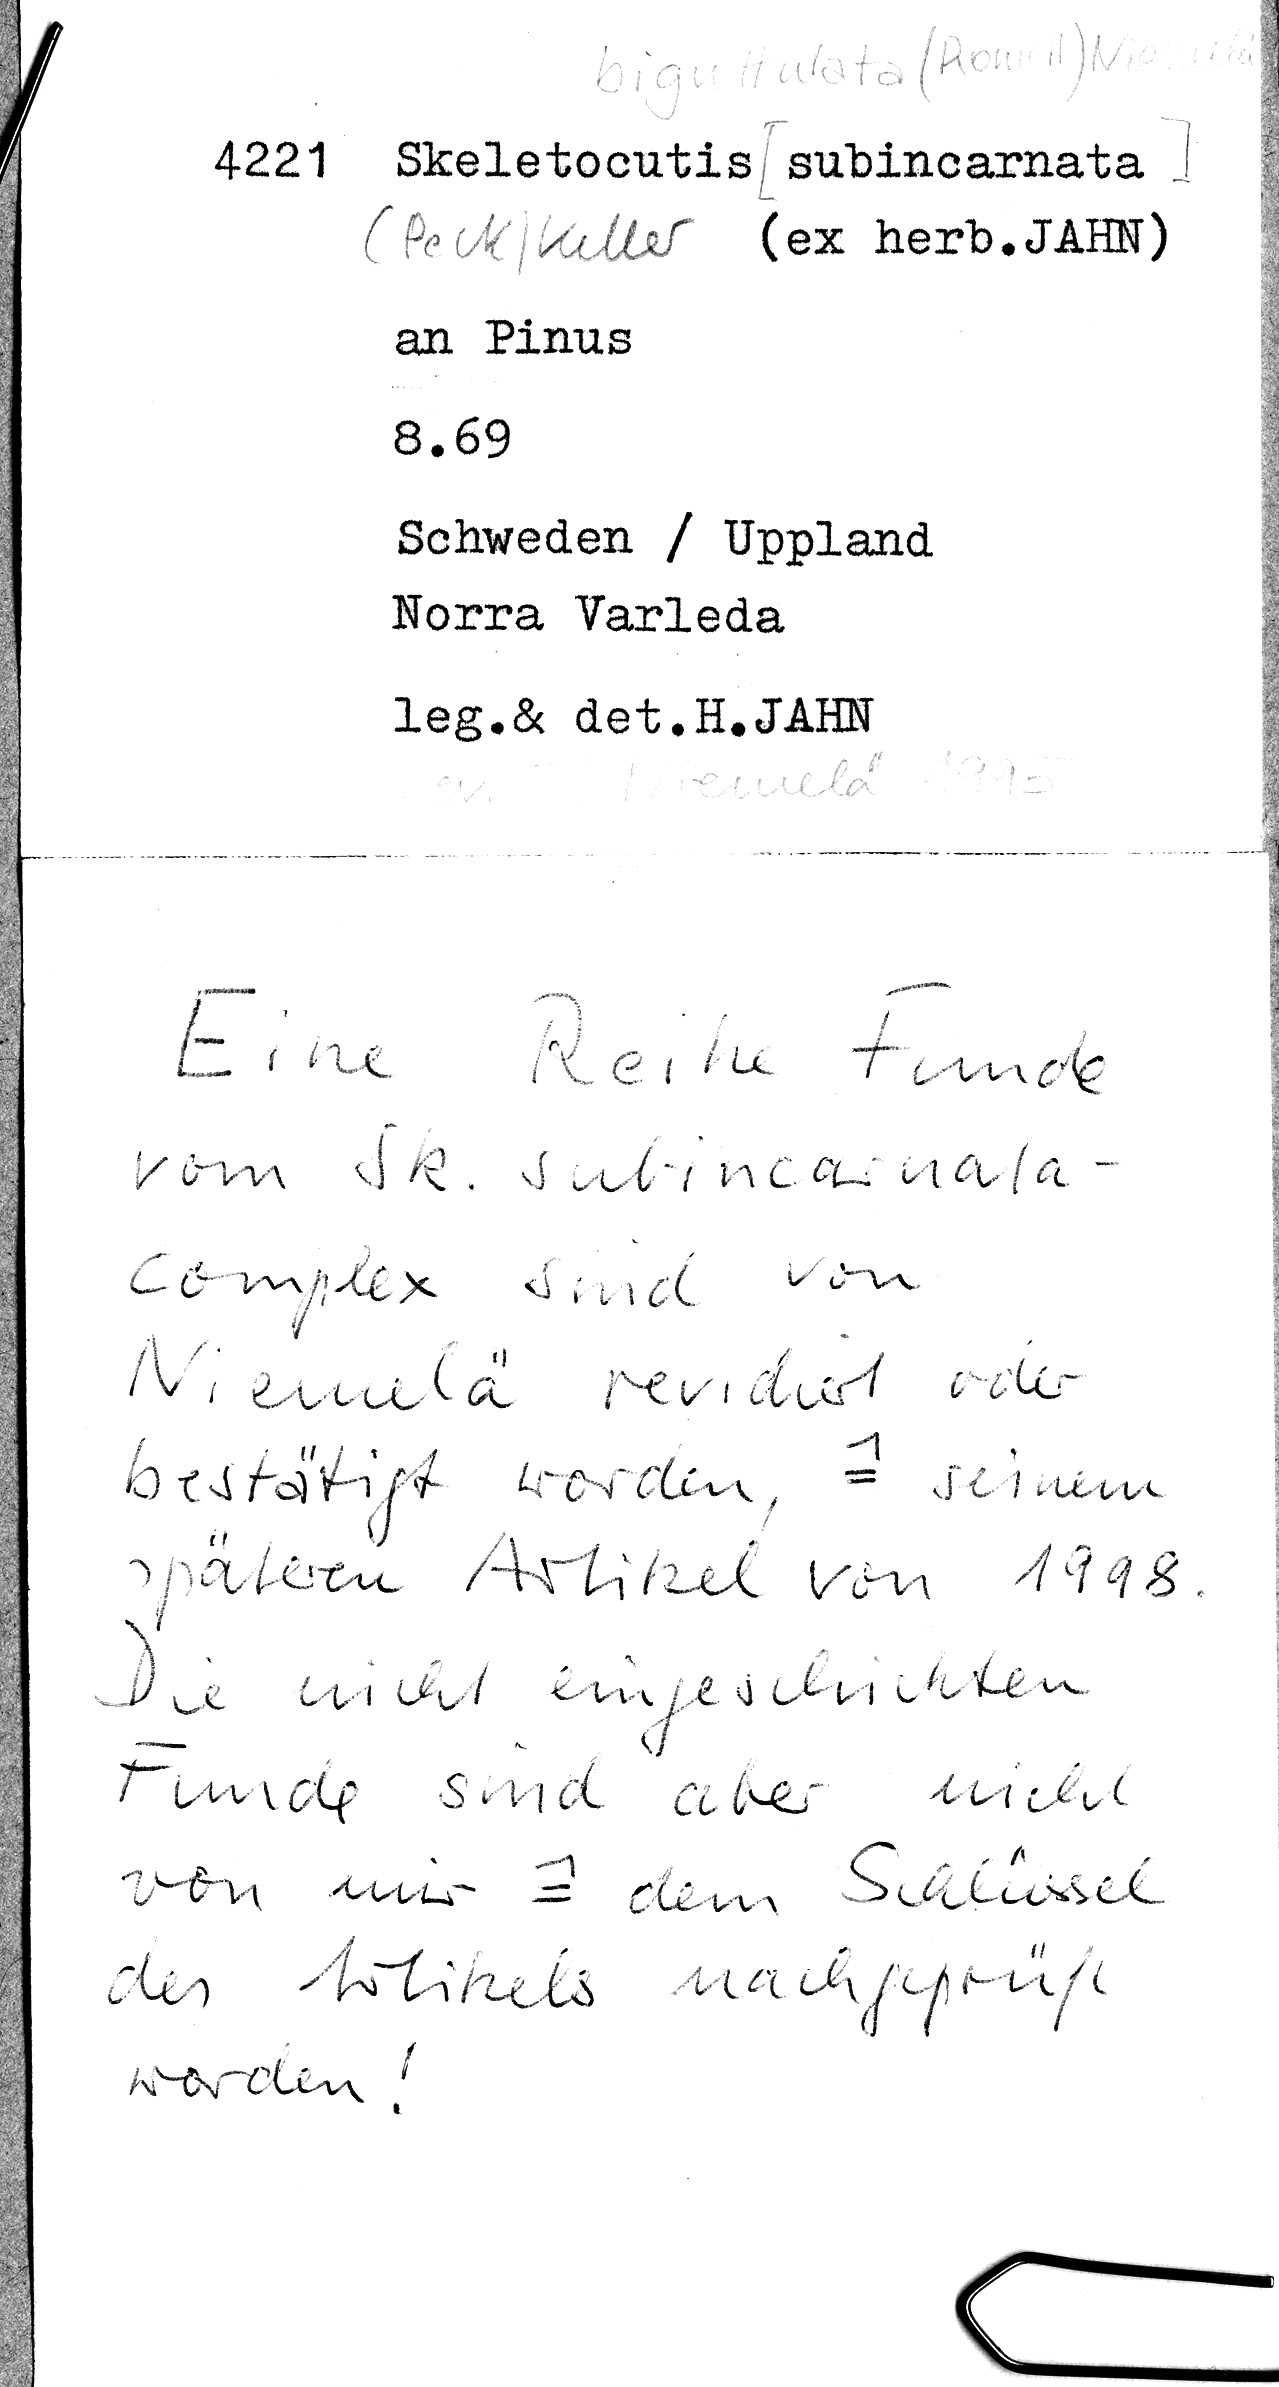 biguttulata (Romell) Niemelä
4221 Skeletocutis [subincarnata]
(Peck) Keller (ex herb.JAHN)
an Pinus
8.69
Schweden / Uppland
Norra Varleda
leg.& det.H.JAHN
Niemelä 1995
Eine Reihe Funde
vom Sk. subincarnata-
complex sind von
Niemelä revidiert oder
bestätigt worden, ≙ seinem
späteren Artikel von 1998.
Die nicht eingeschickten
Funde sind aber nicht
von mir ≙ dem Schlüssel
des Artikels nachgeprüft
worden!